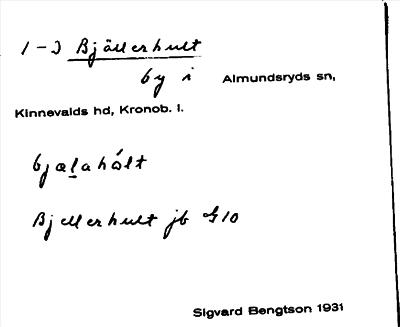 1-3 Bjällerhult
by i Almundsryds sn,
Kinnevalds hd, Kronob. l.
bjælahólt
Bjellerhult jb G10
Sigvard Bengtson 1931